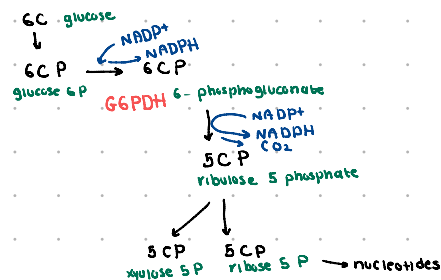 6C glucose
NADP+
NADPH
6CP 6CP
glucose 6P 6-phosphogluconate
G6PDH
NADP+
NADPH
CO2
5CP
ribulose 5 phosphate
5CP 5CP
xyulose 5P ribose 5P nucleotides